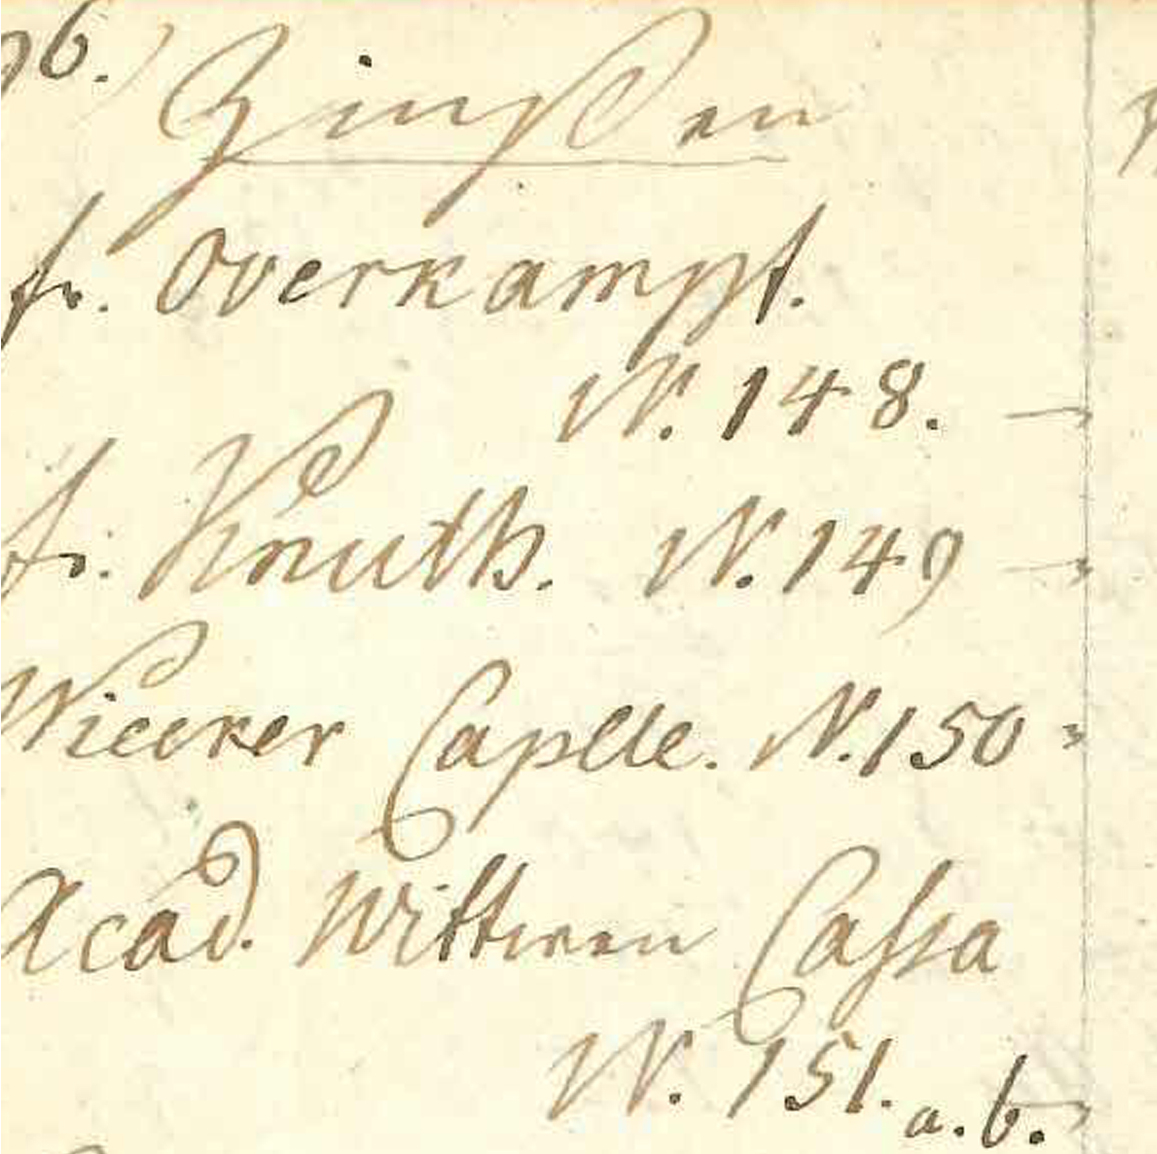 96.
Zinßen
fr. Overkampf.
N. 148.
fr. Knuth. N. 149
Wiecker Caplle. N. 150
Acad. Wittwen Cassa
N. 151. a. b.